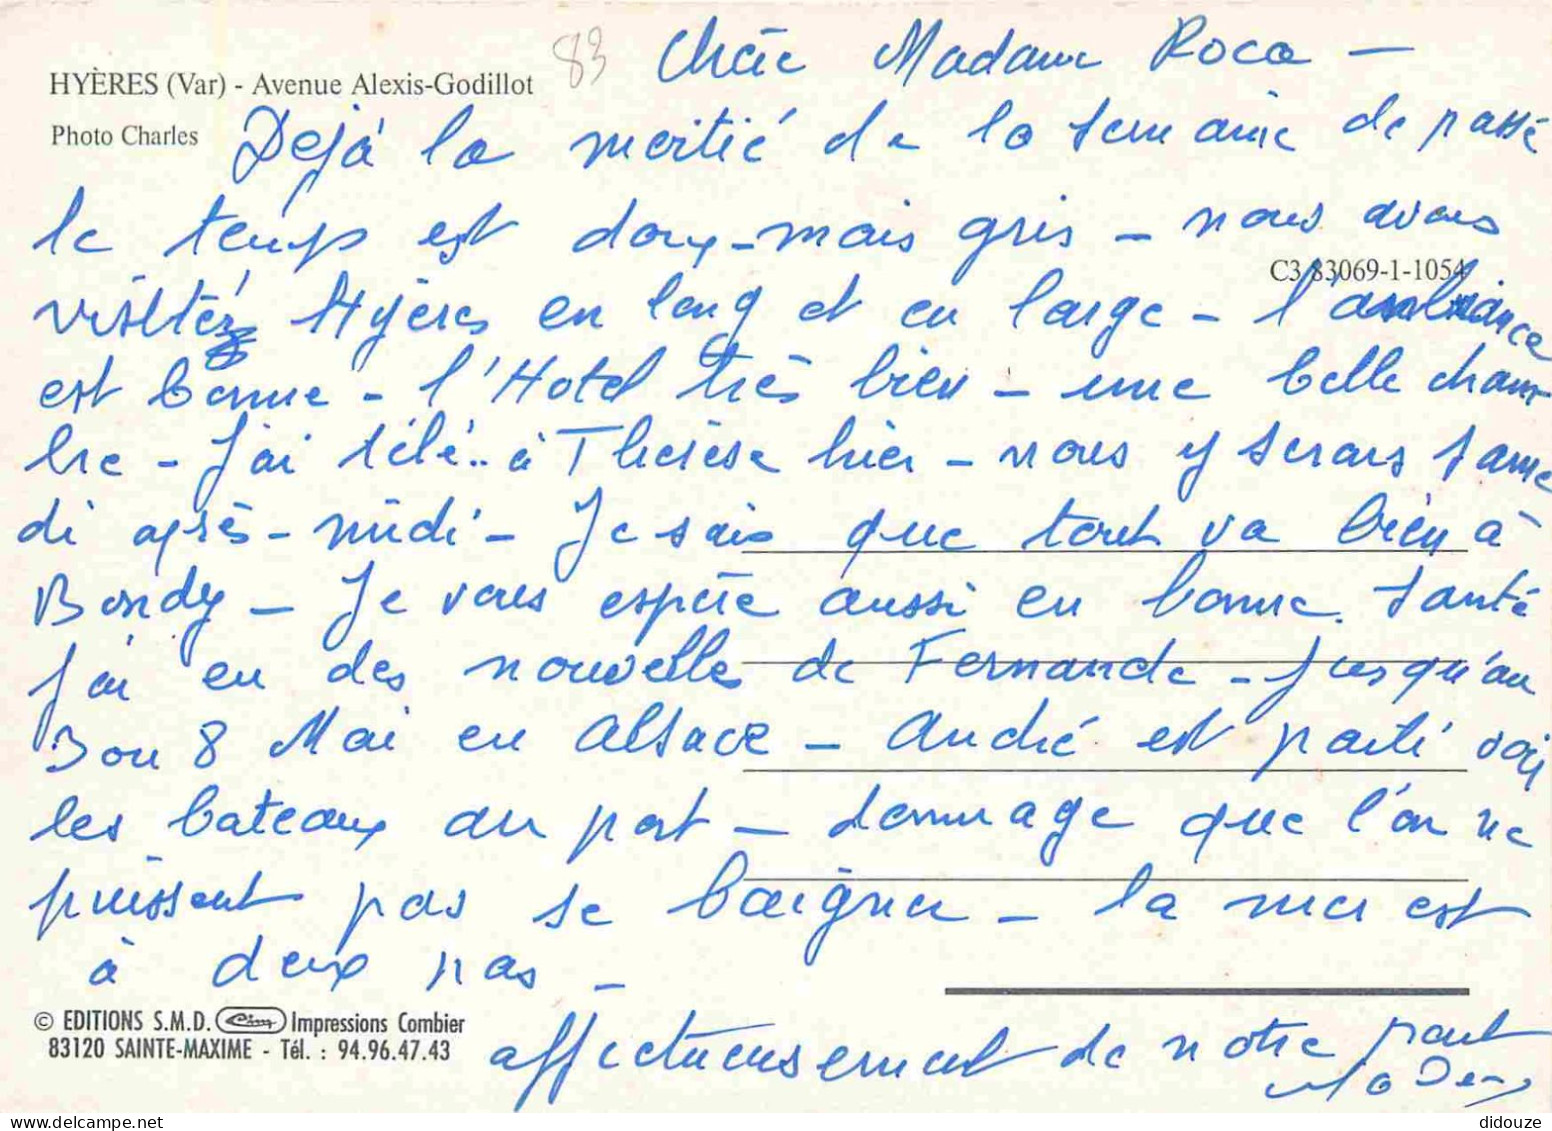 HYÈRES (Var) - Avenue Alexis-Godillot
Photo Charles
83
Chère Madame Roca -
Dejà la moitié de la semaine de passé
le temps est doux - mais gris - nous avons
C3 83069-1-1054
visitéz Hyères en long et en large - l'ambiance
est bonne - l'Hotel très bien - une belle cham
bre - J'ai télé.. à Thérèse hier - nous y serons same
di après-midi - Je sais que tout va bien à
Bondy - Je vous espère aussi en bonne santé
J'ai eu des nouvelles de Fernande - jusqu'au
3 ou 8 Mai en Alsace - André est parti voir
les bateaux au port - dommage que l'on ne
puissent pas se baigner - la mer est
à deux pas -
© EDITIONS S.M.D. Cim Impressions Combier
83120 SAINTE-MAXIME - Tél. : 94.96.47.43
affectueusement de notre part
didouze